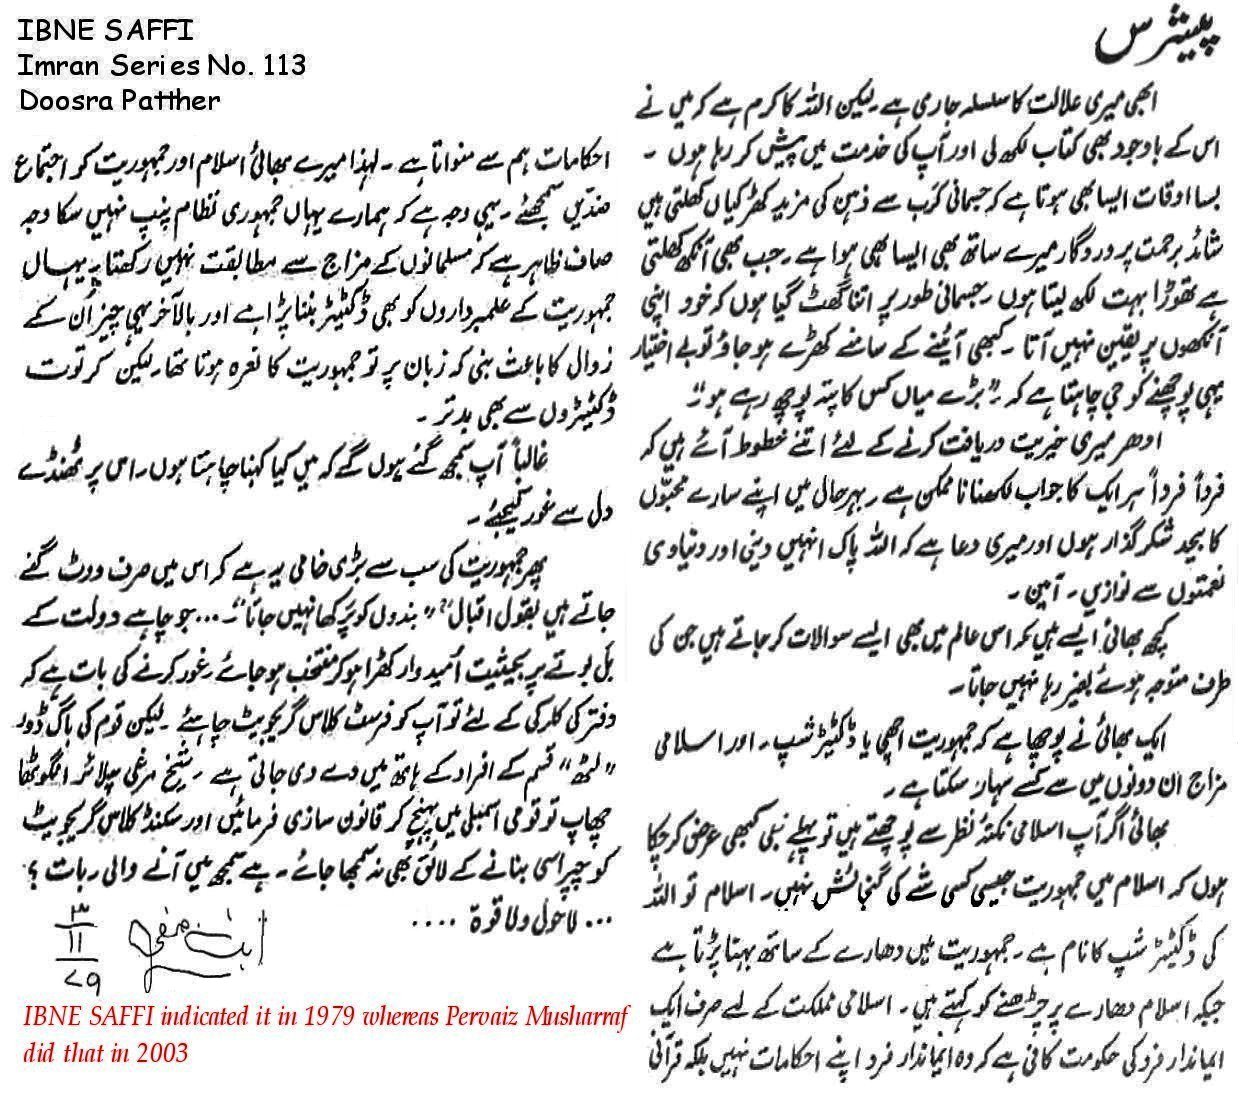 IBNE SAFFI
Imran Series No. 113
Doosra Patther
پیشرس
ابھی میری علالت کا سلسلہ جاری ہے۔ لیکن اللہ کا کرم ہے کہ میں نے
اس کے باوجود بھی کتاب لکھ لی اور آپ کی خدمت میں پیش کر رہا ہوں ۔
بسا اوقات ایسا بھی ہوتا ہے کہ جسمانی کرب سے ذہن کی مزید کھڑکیاں کھلتی ہیں
شائد برحمت پروردگار میرے ساتھ بھی ایسا ہی ہوا ہے ۔ جب بھی آنکھ کھلتی
ہے تھوڑا بہت لکھ لیتا ہوں ۔ جسمانی طور پر اتنا گھٹ گیا ہوں کہ خود اپنی
آنکھوں پر یقین نہیں آتا ۔ کبھی آئینے کے سامنے کھڑے ہو جاؤ تو بے اختیار
یہی پوچھنے کو جی چاہتا ہے کہ ۔ "بڑے میاں کس کا پتہ پوچھ رہے ہو"؟
ادھر میری خیریت دریافت کرنے کے لئے اتنے خطوط آئے ہیں کہ
فرداً فرداً ہر ایک کا جواب لکھنا ناممکن ہے ۔ بہرحال میں اپنے سارے محبّوں
کا بیحد شکر گذار ہوں اور میری دعا ہے کہ اللہ پاک انہیں دینی اور دنیاوی
نعمتوں سے نوازے ۔ آمین ۔
کچھ بھائی ایسے ہیں کہ اس عالم میں بھی ایسے سوالات کر جاتے ہیں جن کی
طرف متوجہ ہوئے بغیر رہا نہیں جاتا ۔
ایک بھائی نے پوچھا ہے کہ جمہوریت اچھی یا ڈکٹیٹر شپ ۔ اور اسلامی
مزاج ان دونوں میں سے کسے سہار سکتا ہے ۔
بھائی اگر آپ اسلامی نکتۂ نظر سے پوچھتے ہیں تو پہلے بھی کبھی عرض کر چکا
ہوں کہ اسلام میں جمہوریت جیسی کسی شے کی گنجائش نہیں ۔ اسلام تو اللہ
کی ڈکٹیٹر شپ کا نام ہے ۔ جمہوریت میں دھارے کے ساتھ بہنا پڑتا ہے
جبکہ اسلام دھارے پر چڑھنے کو کہتے ہیں ۔ اسلامی مملکت کے لیے صرف ایک
ایماندار فرد کی حکومت کافی ہے کہ وہ ایماندار فرد اپنے احکامات نہیں بلکہ قرآنی
احکامات ہم سے منواتا ہے ۔ لہذا میرے بھائی اسلام اور جمہوریت کو اجتماع
ضدّیں سمجھئے ۔ یہی وجہ ہے کہ ہمارے یہاں جمہوری نظام پنپ نہیں سکا وجہ
صاف ظاہر ہے کہ مسلمانوں کے مزاج سے مطابقت نہیں رکھتا ۔ یہاں
جمہوریت کے علمبرداروں کو بھی ڈکٹیٹر بننا پڑا ہے اور بالآخر یہی چیز اُن کے
زوال کا باعث بنی کہ زبان پر تو جمہوریت کا نعرہ ہوتا تھا ۔ لیکن کرتوت
ڈکٹیٹروں سے بھی بدتر ۔
غالباً آپ سمجھ گئے ہوں گے کہ میں کیا کہنا چاہتا ہوں ۔ اس پر ٹھنڈے
دل سے غور کیجئے ۔
پھر جمہوریت کی سب سے بڑی خامی یہ ہے کہ اس میں صرف ووٹ گنے
جاتے ہیں بقول اقبالؒ "بندوں کو پرکھا نہیں جاتا" ۔ ... جو چاہے دولت کے
بل بوتے پر بحیثیت اُمیدوار کھڑا ہو کر منتخب ہو جائے ۔ غور کرنے کی بات ہے کہ
دفتر کی کلرکی کے لئے تو آپ کو فرسٹ کلاس گریجویٹ چاہئے ۔ لیکن قوم کی باگ ڈور
"لٹھ" قسم کے افراد کے ہاتھ میں دے دی جاتی ہے ۔ شیخ مرغی سپلائر انگوٹھا
چھاپ تو قومی اسمبلی میں پہنچ کر قانون سازی فرمائیں اور سکنڈ کلاس گریجویٹ
کو چپراسی بنانے کے لائق بھی نہ سمجھا جائے ۔ ہے سمجھ میں آنے والی بات ؟
... لا حول ولا قوة ....
ابن صفی
۳
۱۱
۷۹
IBNE SAFFI indicated it in 1979 whereas Pervaiz Musharraf
did that in 2003